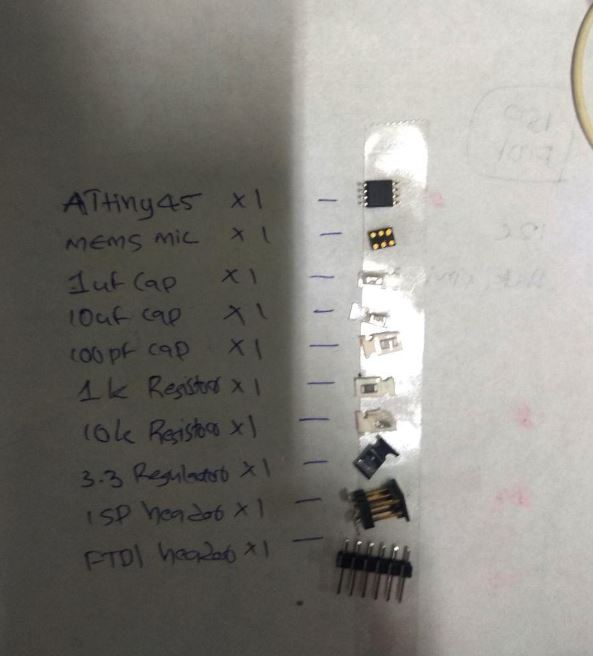 ATtiny45 x1 -
MEMS mic x1 -
1uf cap x1 -
10uf cap x1 -
100pf cap x1 -
1k Resistor x1 -
10k Resistor x1 -
3.3 Regulator x1 -
ISP header x1 -
FTDI header x1 -